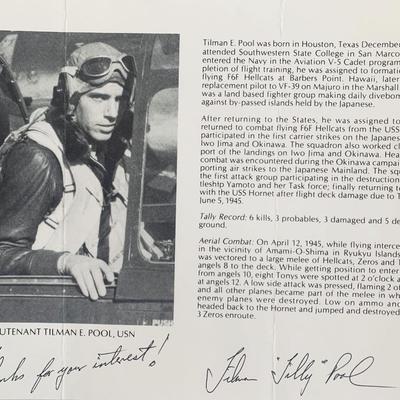 Tilman E. Pool was born in Houston, Texas December
attended Southwestern State College in San Marco
entered the Navy in the Aviation V-5 Cadet program
pletion of flight training, he was assigned to formatio
flying F6F Hellcats at Barbers Point. Hawaii, later
replacement pilot to VF-39 on Majuro in the Marshall
was a land based fighter group making daily divebom
against by-passed islands held by the Japanese.
After returning to the States, he was assigned to
returned to combat flying F6F Hellcats from the USS
participated in the first carrier strikes on the Japanese
Iwo Jima and Okinawa. The squadron also worked cl
port of the landings on Iwo Jima and Okinawa. Hea
combat was encountered during the Okinawa campai
porting air strikes to the Japanese Mainland. The squ
the first attack group participating in the destruction
tleship Yamoto and her Task force; finally returning t
with the USS Hornet after flight deck damage due to T
June 5, 1945.
Tally Record: 6 kills, 3 probables, 3 damaged and 5 de
ground.
Aerial Combat: On April 12, 1945, while flying interce
in the vicinity of Amami-O-Shima in Ryukyu Islands
was vectored to a large melee of Hellcats, Zeros and T
angels 8 to the deck. While getting position to enter
from angels 10, eight Tonys were spotted at 2 o'clock a
at angels 12. A low side attack was pressed, flaming 2 o
and all other planes became part of the melee in whi
enemy planes were destroyed. Low on ammo and
headed back to the Hornet and jumped and destroyed
3 Zeros enroute.
EUTENANT TILMAN E. POOL, USN
nks for your interest!
Tilman "Tilly" Pool